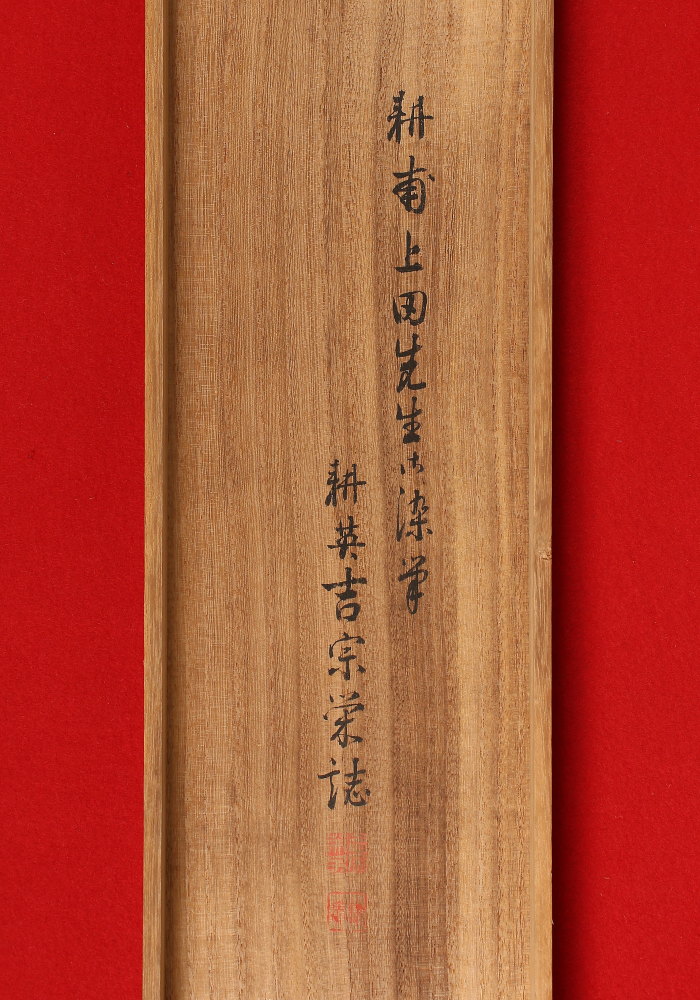 耕甫上田先生御染筆
耕英吉宗栄誌